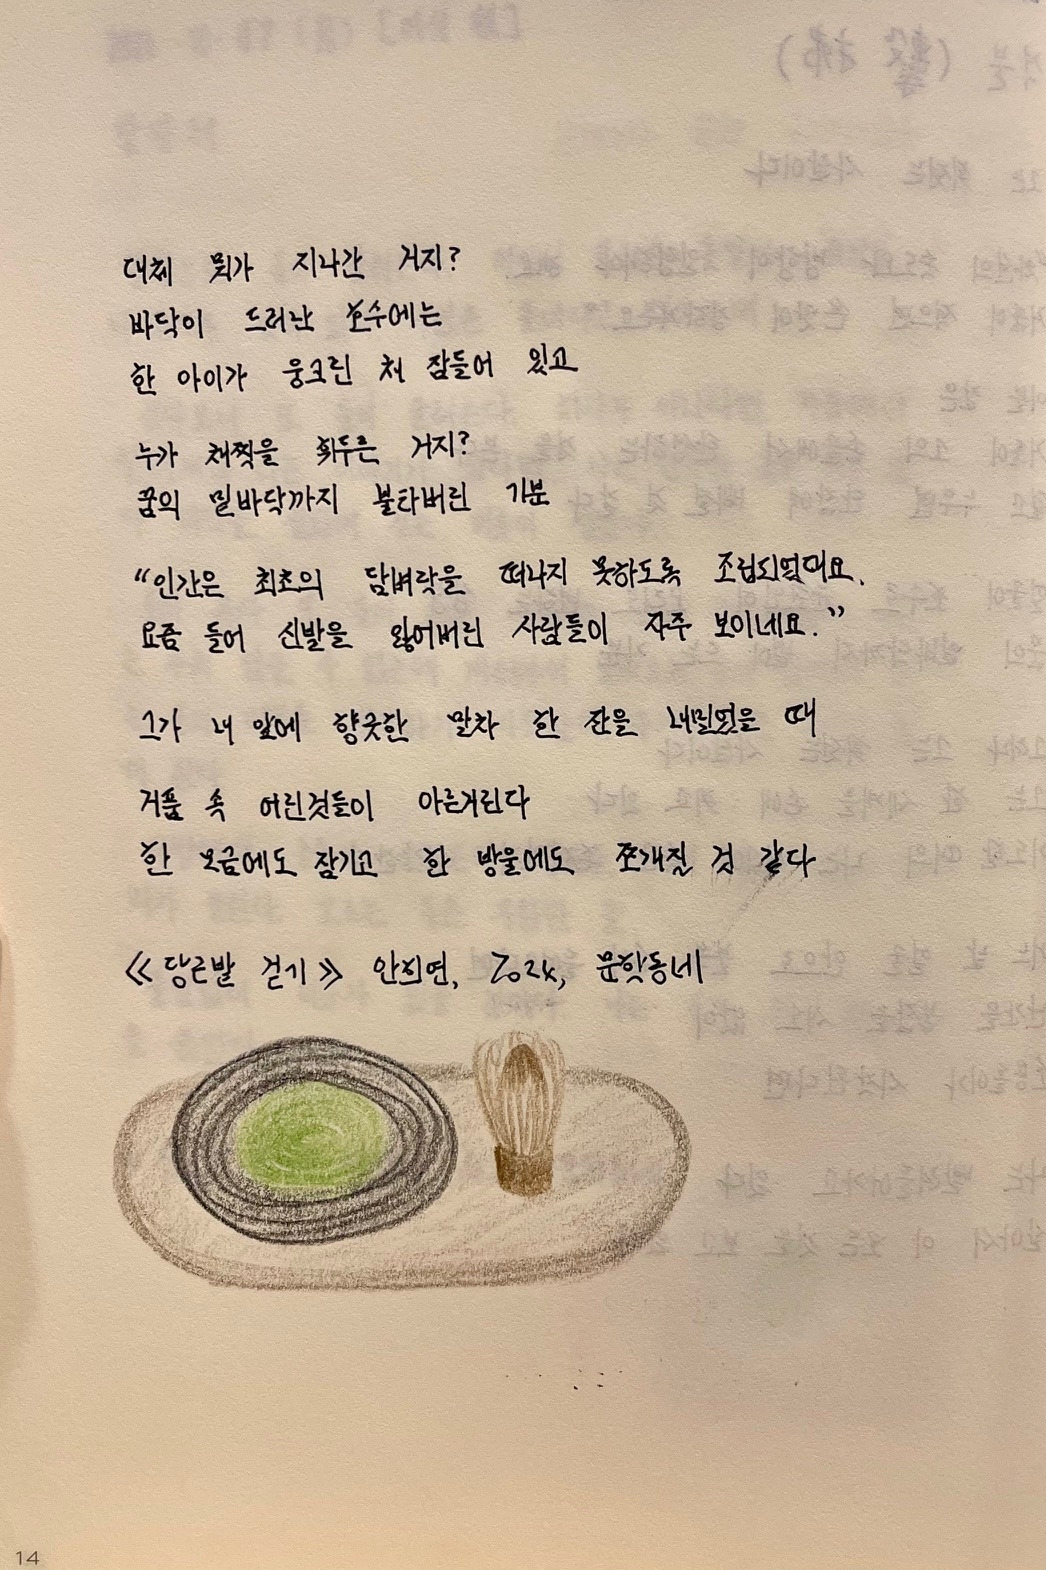 대체 뭐가 지나간 거지?
바닥이 드러난 호수에는
한 아이가 웅크린 채 잠들어 있고
누가 채찍을 휘두른 거지?
꿈의 밑바닥까지 불타버린 기분
“인간은 최초의 담벼락을 떠나지 못하도록 조립되었대요.
요즘 들어 신발을 잃어버린 사람들이 자주 보이네요.”
그가 내 앞에 향긋한 말차 한 잔을 내밀었을 때
거품 속 어린것들이 아른거린다
한 모금에도 잠기고 한 방울에도 쪼개질 것 같다
≪당근밭 걷기≫ 안희연, 2024, 문학동네
14